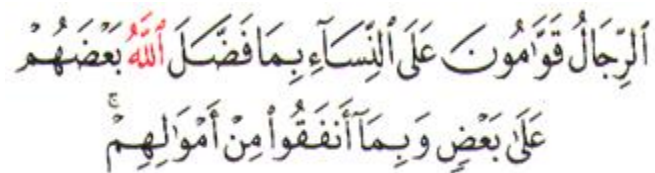 ٱلرِّجَالُ قَوَّٰمُونَ عَلَى ٱلنِّسَآءِ بِمَا فَضَّلَ ٱللَّهُ بَعۡضَهُمۡ
عَلَىٰ بَعۡضٖ وَبِمَآ أَنفَقُواْ مِنۡ أَمۡوَٰلِهِمۡۚ